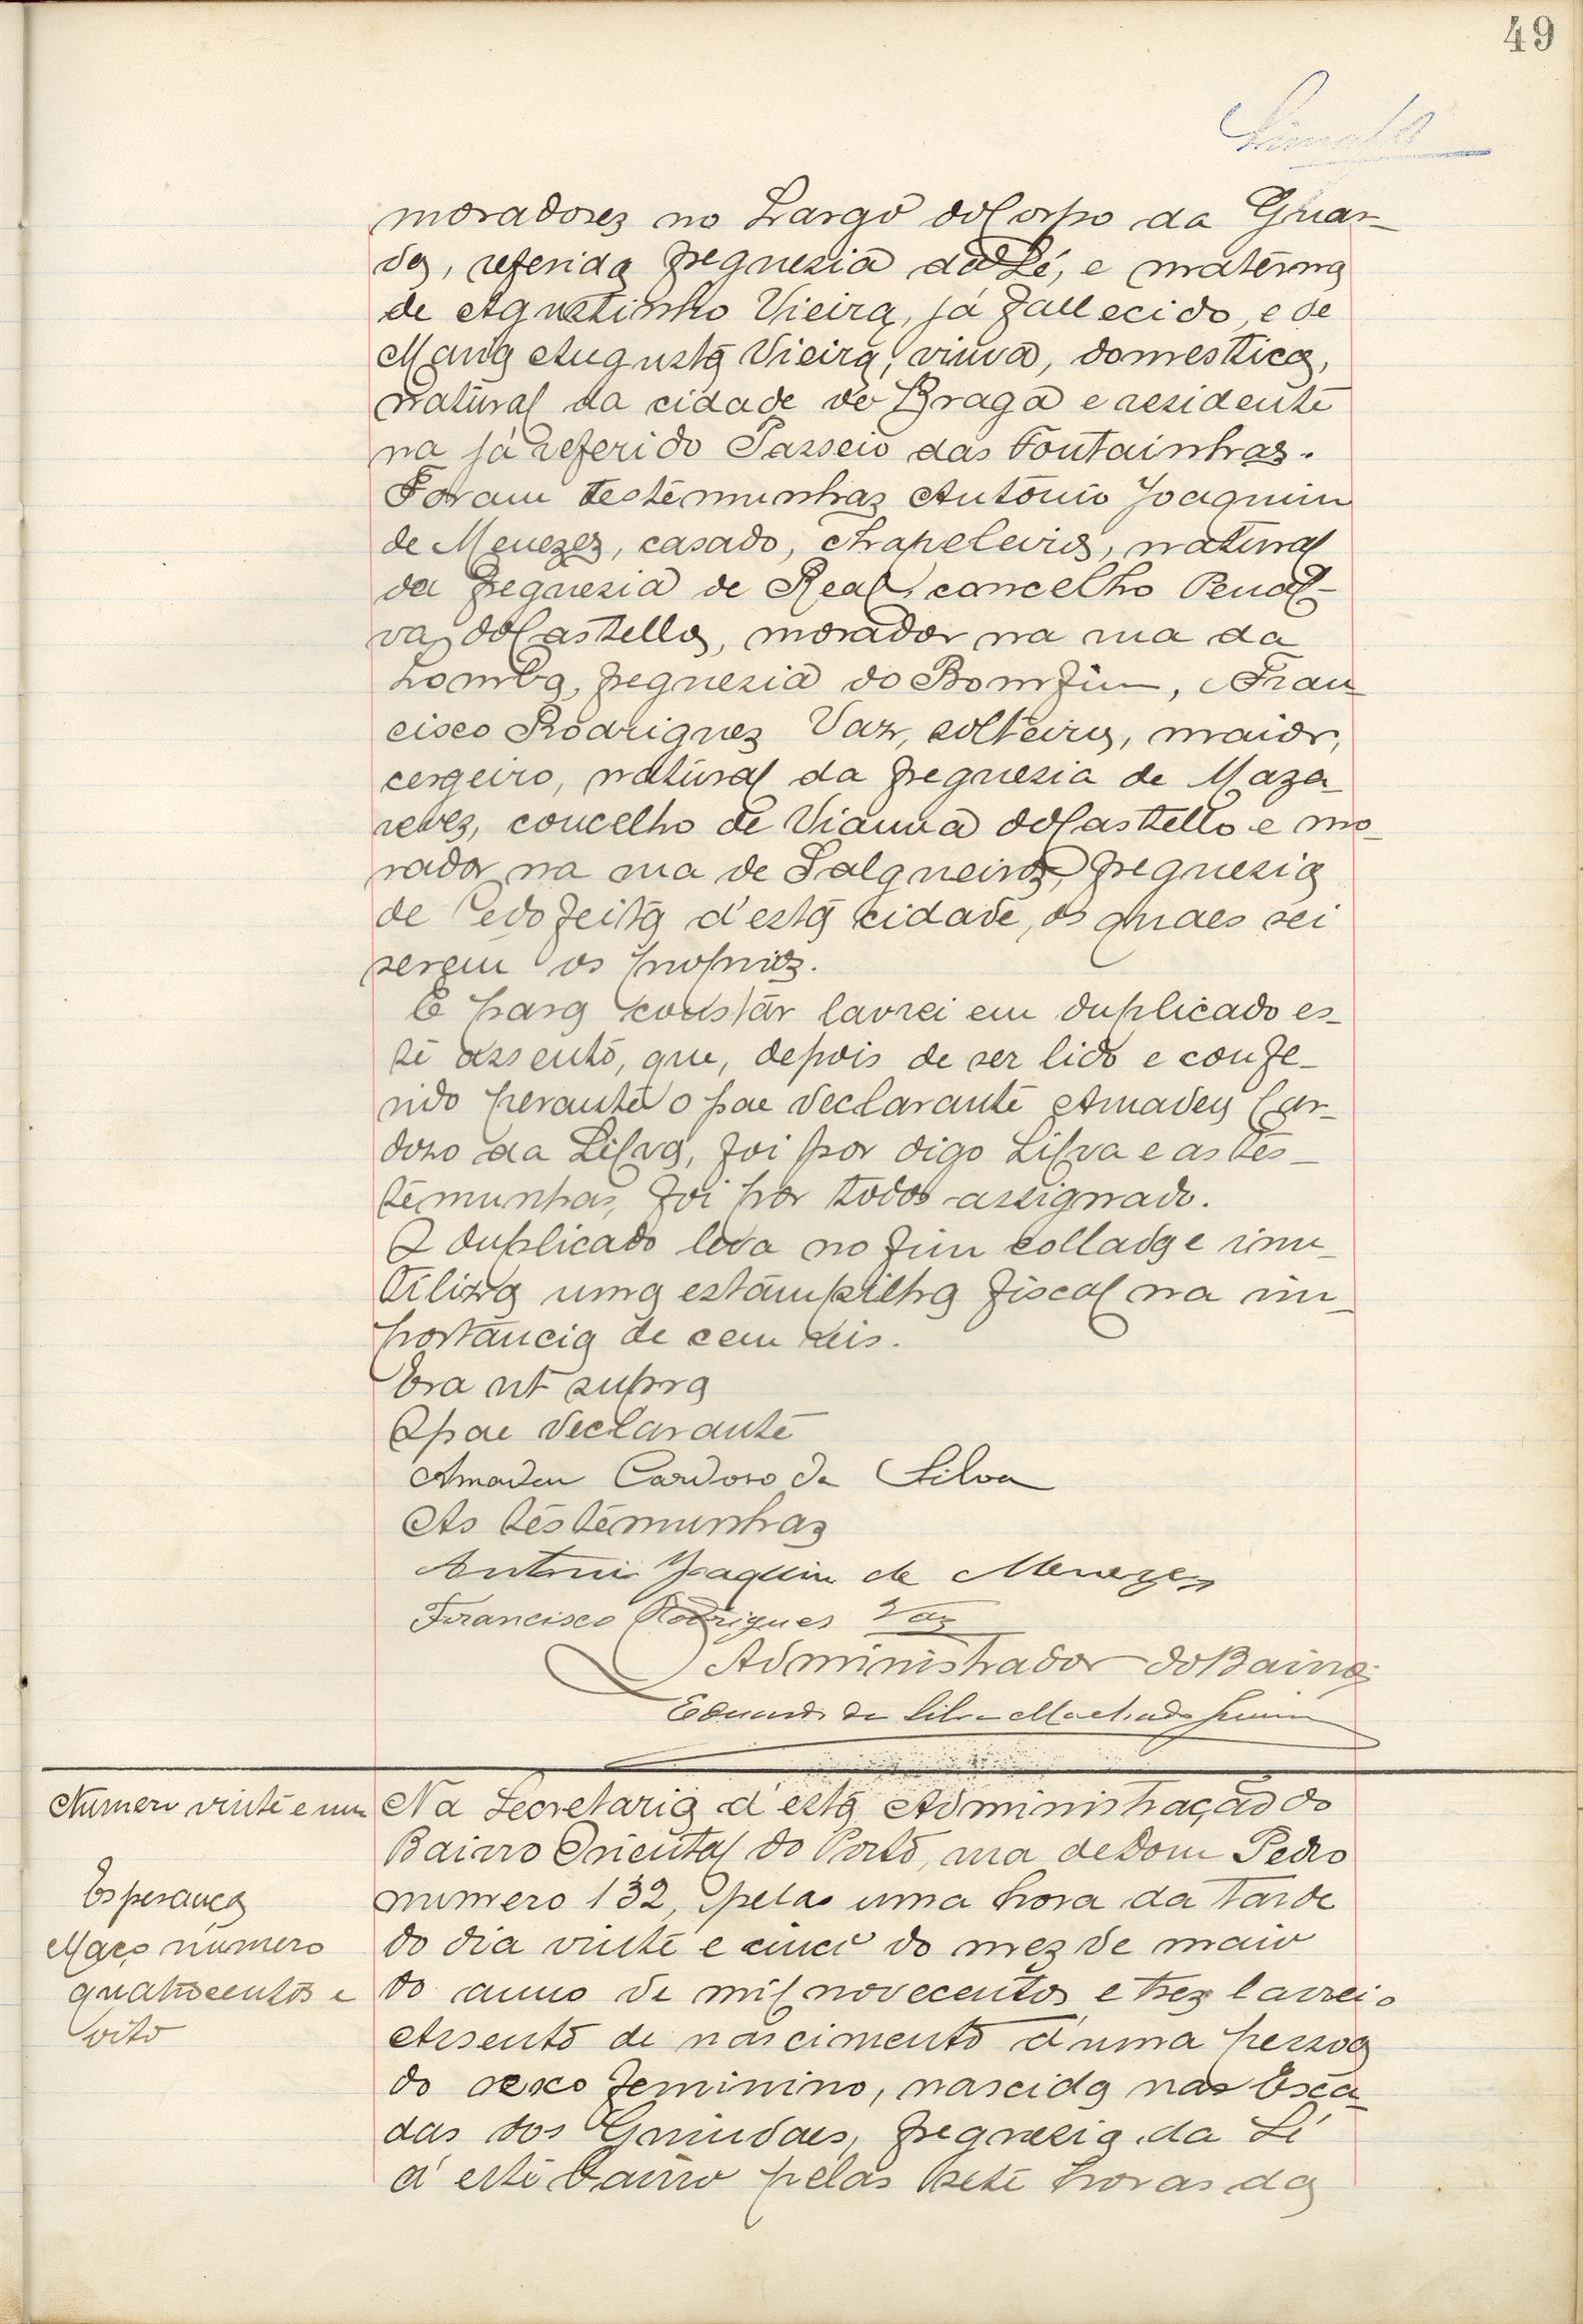 49
moradores no Largo do Corpo da Guar-
da, referida freguezia da Sé, e materna
de Agustinho Vieira, já fallecido, e de
Maria Augusta Vieira, viuva, domestica,
natural da cidade de Braga e residente
na já referido Passeio das Fontainhas.
Foram testemunhas Antonio Joaquim
de Menezes, casado, chapeleiro, natural
da freguezia de Real, concelho Penal-
va do Castello, morador na rua da
Lomba, freguezia do Bomfim, Fran-
cisco Rodrigues Vaz, solteiro, maior,
cergeiro, natural da freguezia de Maza-
refes, concelho de Vianna do Castello e mo-
rador na rua de Salgueiros, freguezia
de Cedofeita d'esta cidade, os quaes sei
serem os proprios.
E para constar lavrei em duplicado es-
te assento, que, depois de ser lido e confe-
rido perante o pae declarante Amadeu Car-
doso da Silva, foi por digo Silva e as tes-
temunhas, foi por todos assignado.
O duplicado leva no fim collada e inu-
tiliza uma estampilha fiscal na im-
portancia de cem reis.
Era ut supra
O pae declarante
Amadeu Cardoso da Silva
As testemunhas
Antonio Joaquim de Menezes
Francisco Rodrigues Vaz
O Administrador do Bairro
Eduardo da Silva Machado Junior
Numero vinte e um
Esperança
Maço numero
quatrocentos e
oito
Na Secretaria d'esta Administração do
Bairro Oriental do Porto, rua de Dom Pedro
numero 132, pela uma hora da tarde
do dia vinte e cinco do mez de maio
do anno de mil novecentos e trez lavrei o
assento de nascimento d'uma pessoa
do sexo feminino, nascida nas Esca-
das dos Guindaes, freguezia da Sé
d'este bairro pelas sete horas da